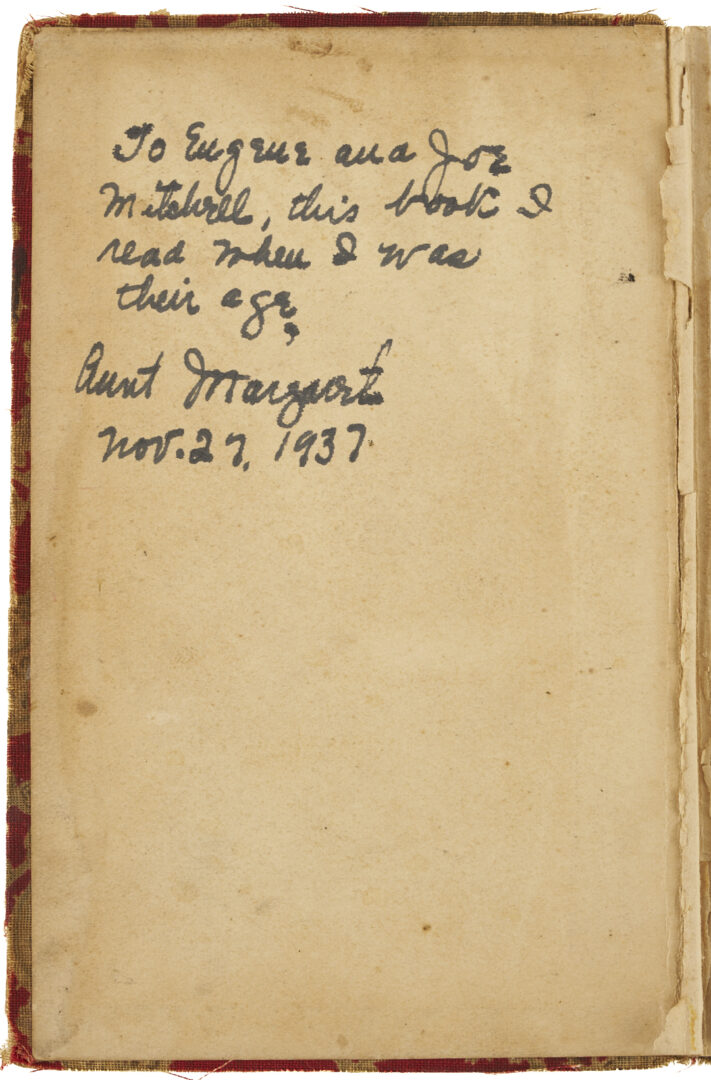 To Eugene and Joe
Mitchell, this book I
read when I was
their age.
Aunt Margaret
Nov. 27, 1937